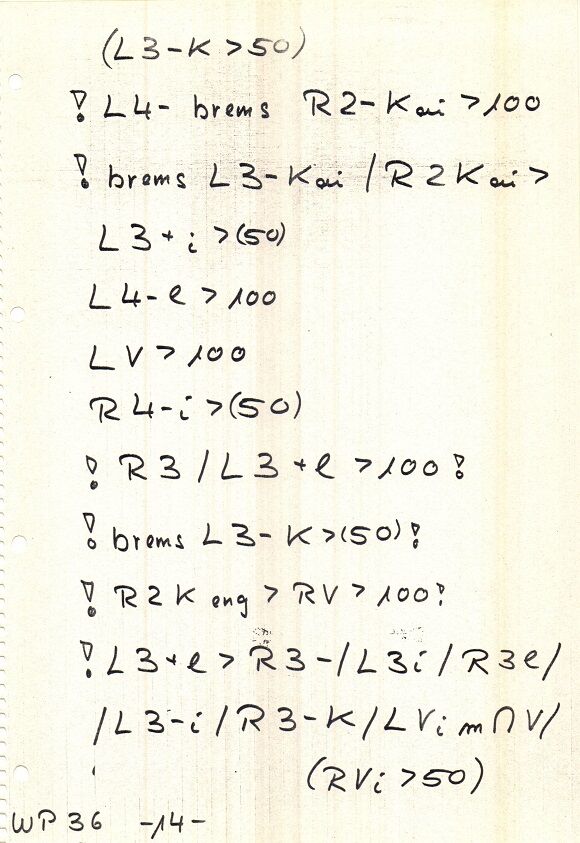 (L3-K>50)
! L4- brems R2-Kai >100
! brems L3-Kai /R2Kai>
L3+i >(50)
L4-e >100
LV >100
R4-i >(50)
! R3/L3+e >100!
! brems L3-K>(50)!
! R2K eng > RV >100!
! L3+e > R3-/L3i/R3e/
/L3-i/R3-K/LVi m∩V/
(RVi >50)
WP36 -14-